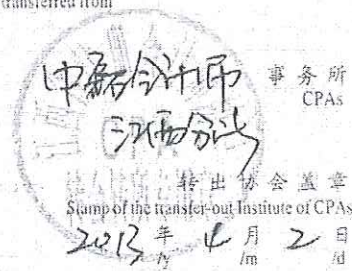 transferred from
中磊会计师 事务所
CPAs
江西分所
转出协会盖章
Stamp of the transfer-out Institute of CPAs
2013 年 4 月 2 日
/y /m /d